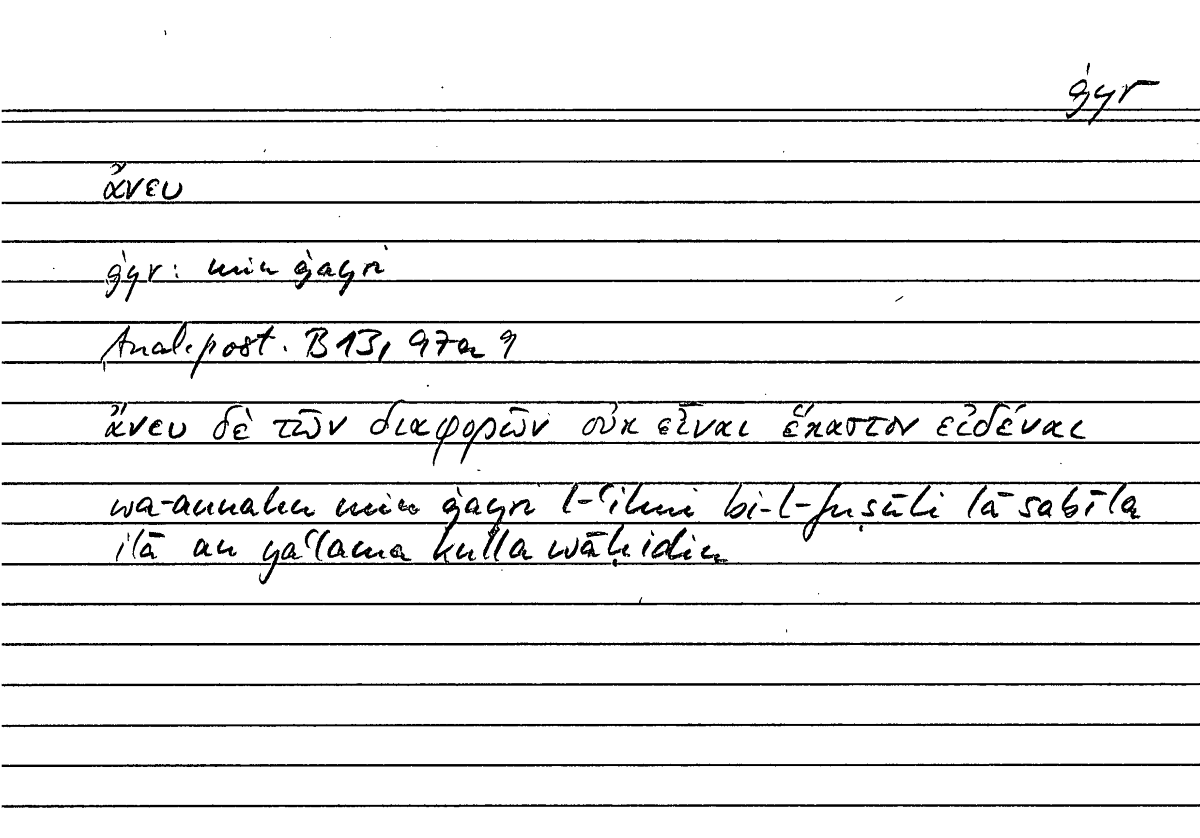 ġyr
ἄνευ
ġyr: min ġayri
Anal. post. B 13, 97a 9
ἄνευ δὲ τῶν διαφορῶν οὐκ εἶναι ἕκαστον εἰδέναι
wa-annahu min ġayri l-ʿilmi bi-l-fuṣūli lā sabīla
ilā an yaʿlama kulla wāḥidin